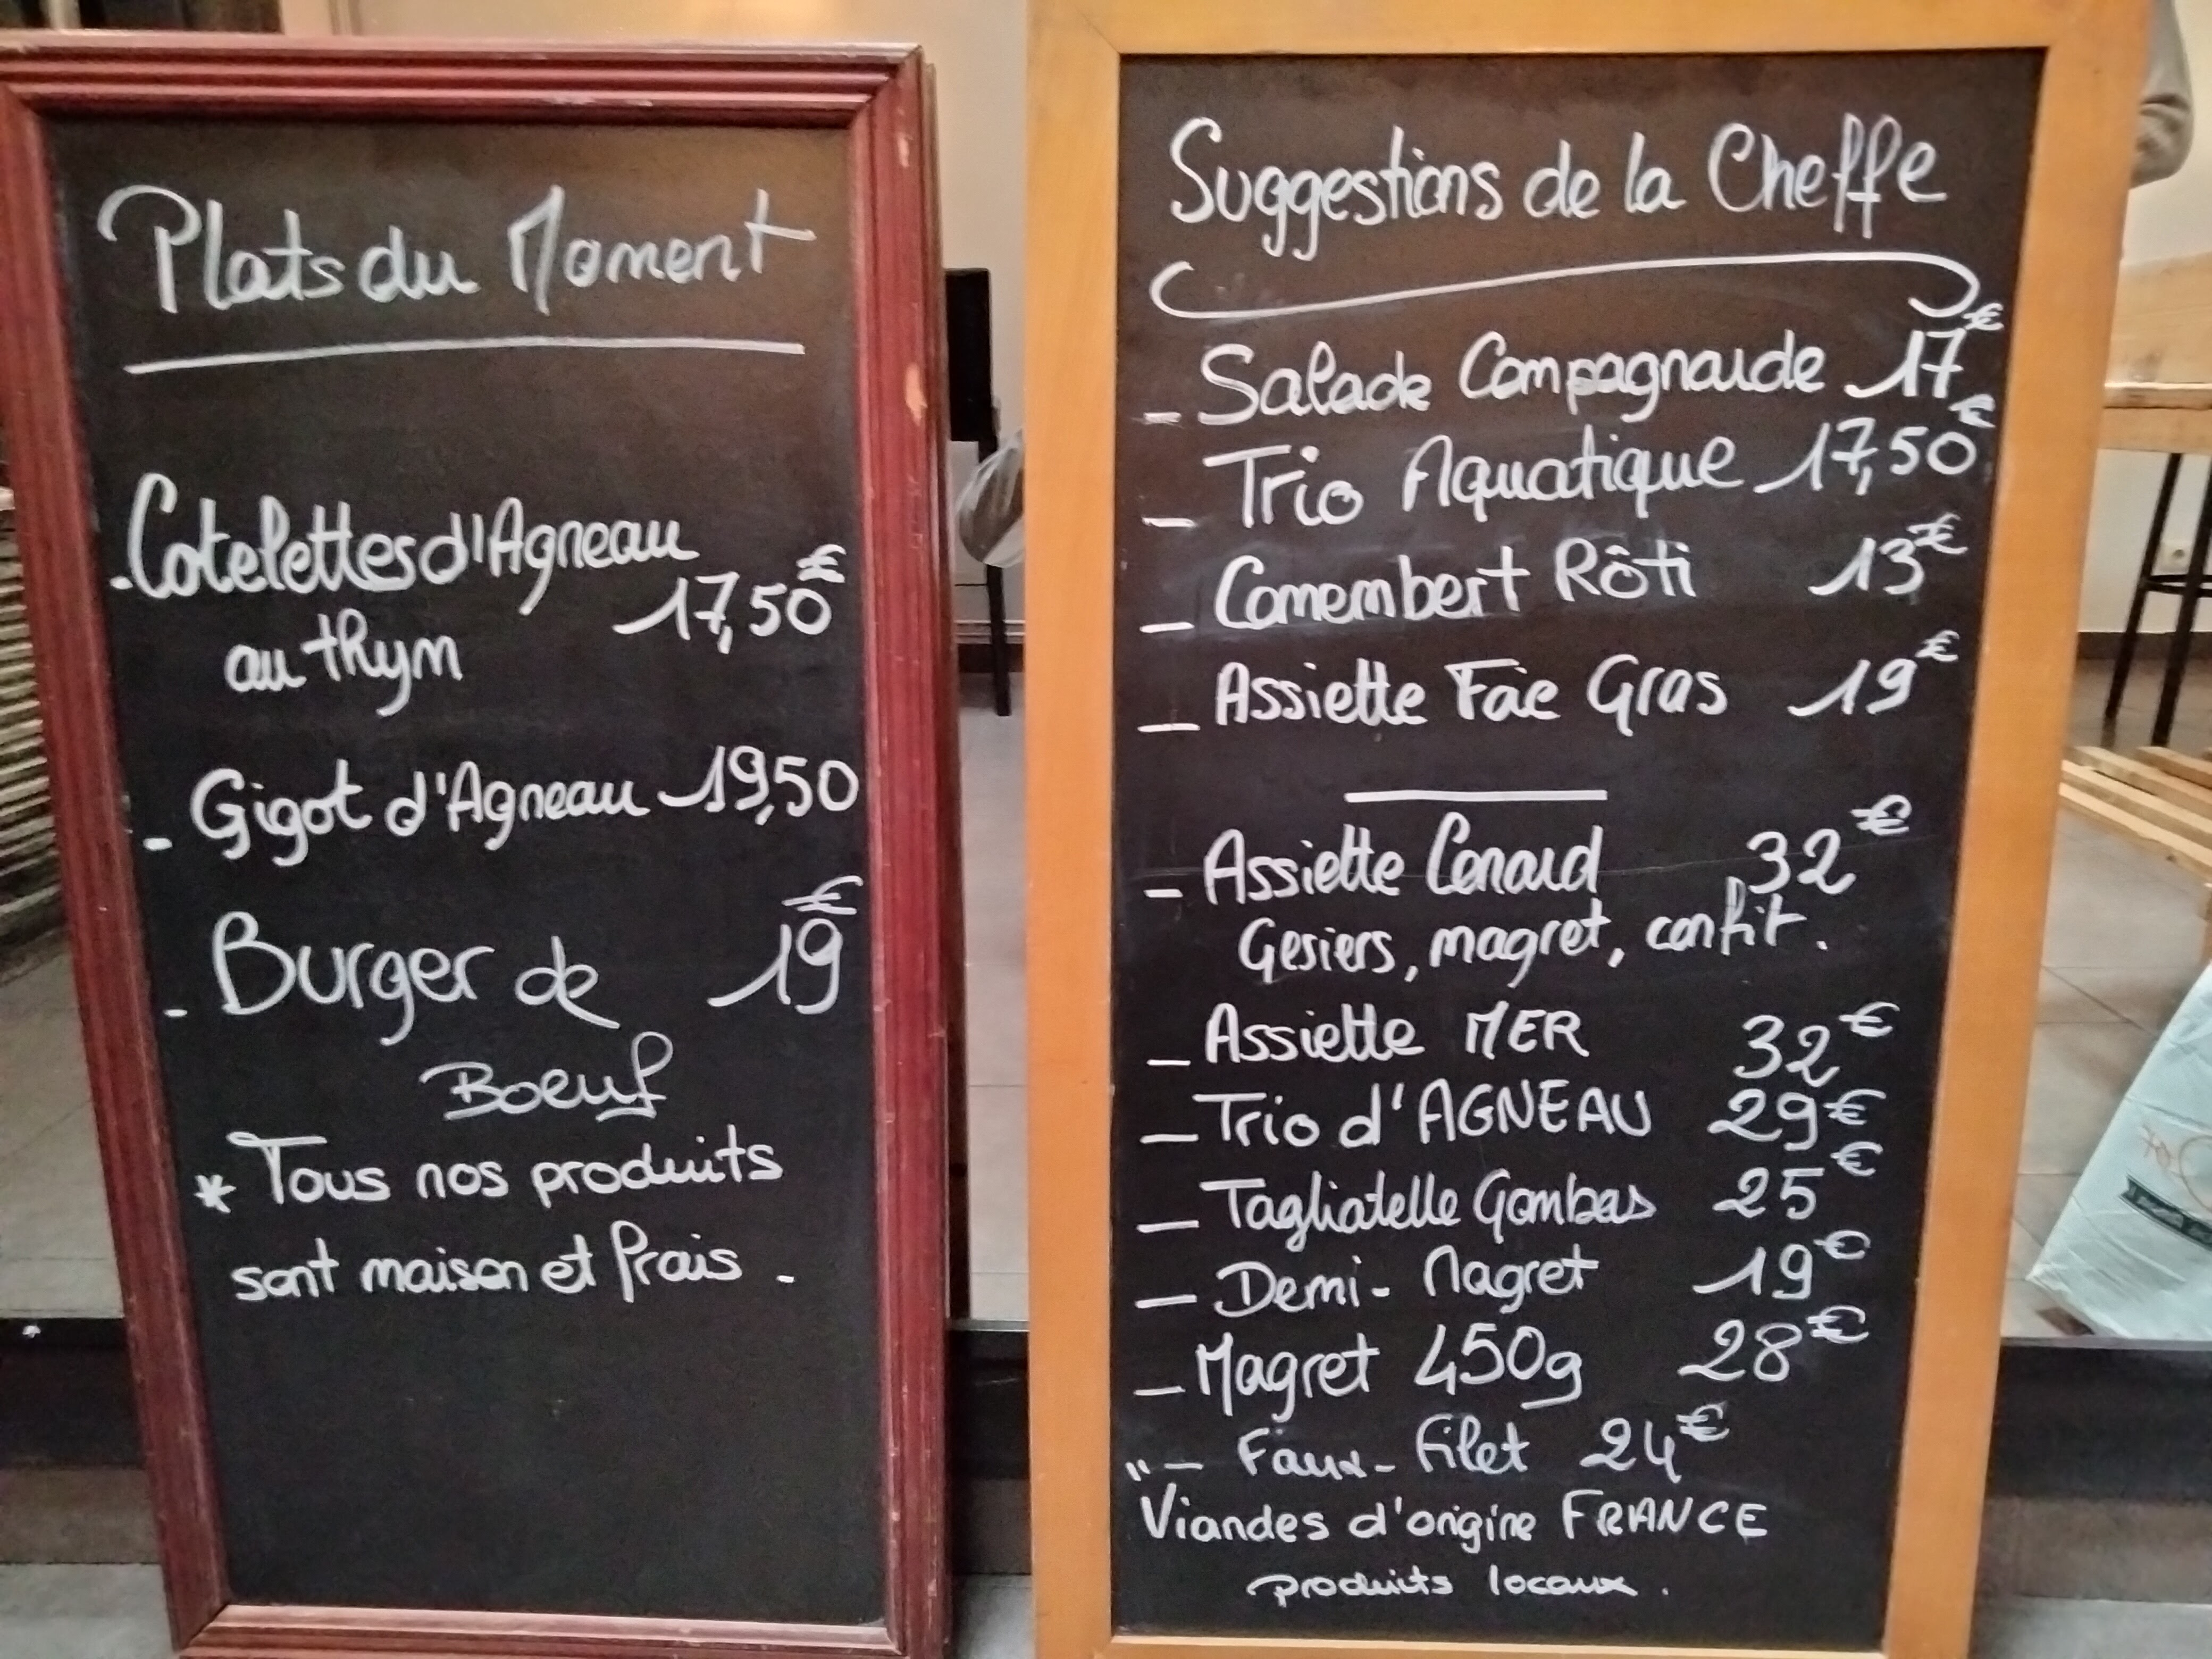 Plats du Moment
- Cotelettes d'Agneau
au thym 17,50€
- Gigot d'Agneau 19,50
- Burger de 19€
Boeuf
* Tous nos produits
sont maison et frais.
Suggestions de la Cheffe
- Salade Campagnarde 17€
- Trio Aquatique 17,50€
- Camembert Rôti 13€
- Assiette Foie Gras 19€
- Assiette Canard 32€
Gesiers, magret, confit.
- Assiette MER 32€
- Trio d'AGNEAU 29€
- Tagliatelle Gambas 25€
- Demi-Magret 19€
- Magret 450g 28€
"- Faux-Filet 24€
Viandes d'origine FRANCE
produits locaux.